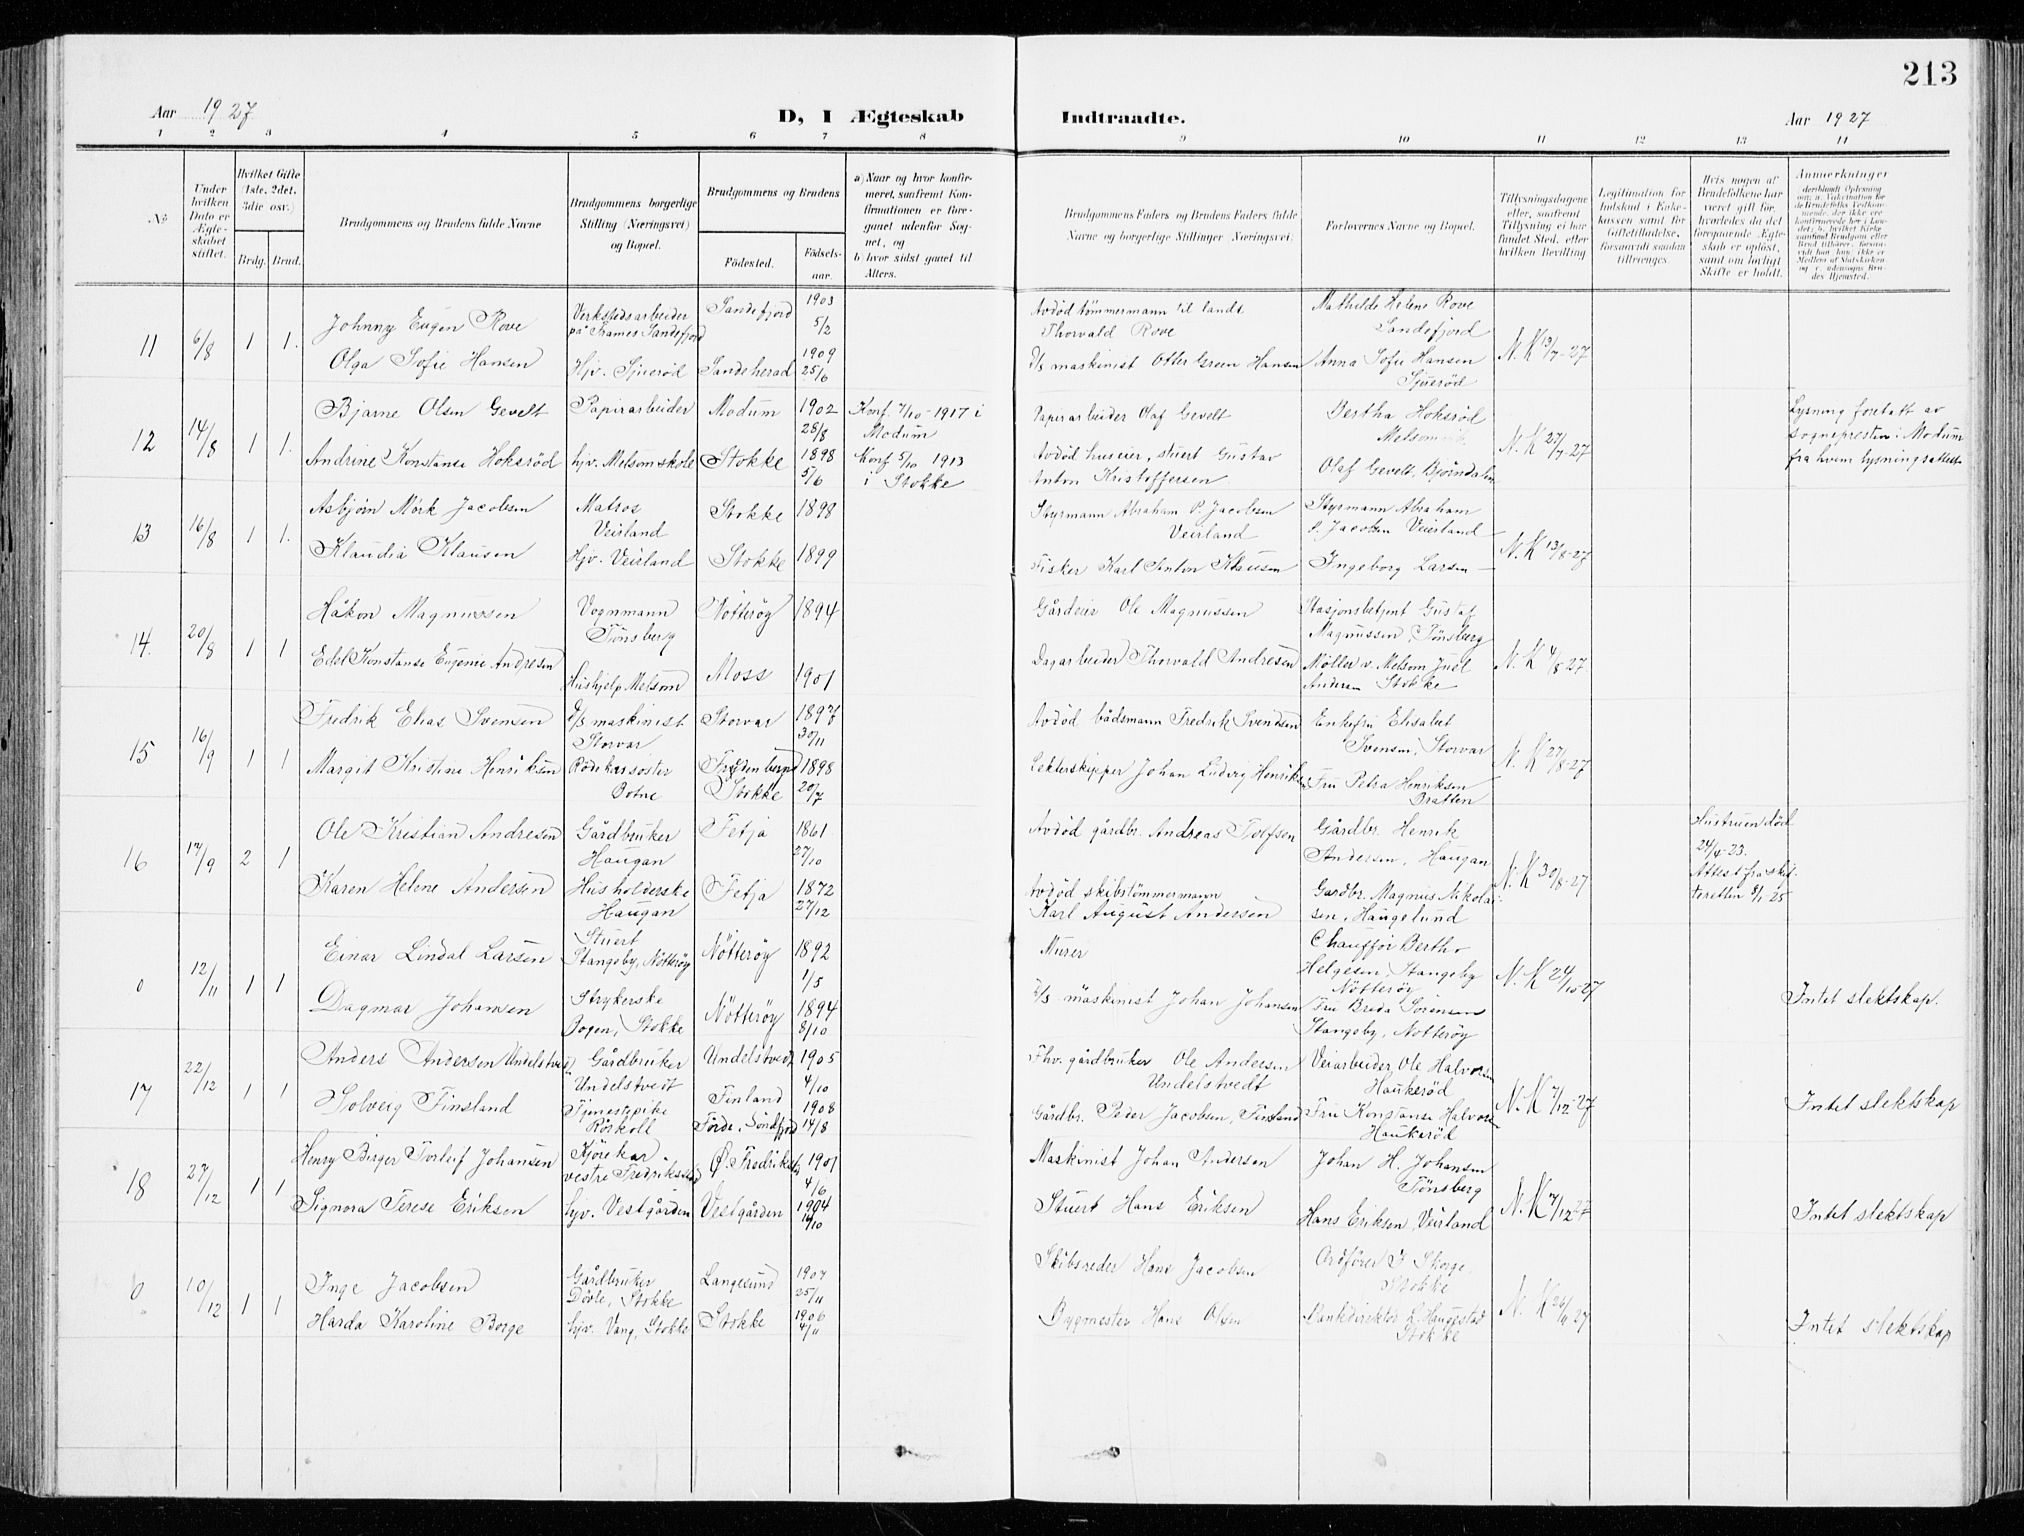 213
Aar 1927
D, I Ægteskab
Indtraadte.
Aar 1927
1 2 3 4 5 6 7 8 9 10 11 12 13 14
No
Under hvilken Dato er Ægteskabet stiftet.
Hvilket Gifte (1ste, 2det, 3die osv.)
Brdg. Brud.
Brudgommens og Brudens fulde Navne
Brudgommens borgerlige Stilling (Næringsvei) og Bopæl.
Brudgommens og Brudens
Fødested.
Fødselsaar.
a) Naar og hvor konfirmeret, saafremt Konfirmationen er foregaaet udenfor Sognet, og
b) hvor sidst gaaet til Alters.
Brudgommens Faders og Brudens Faders fulde Navne og borgerlige Stillinger (Næringsvei)
Forlovernes Navne og Bopæl.
Tillysningsdagene eller, saafremt Tillysning ei har fundet Sted, efter hvilken Bevilling
Legitimation for Indskud i Enkekassen samt for Giftetilladelse, forsaavidt saadan tiltrænges.
Hvis nogen af Brudefolkene har været gift før, hvorledes da det foregaaende Ægteskab er opløst, samt om lovligt Skifte er holdt.
Anmerkninger
11 6/8 1 1.
Johnny Eugen Rove
Verkstedsarbeider på Framnes Sandefjord
Sandefjord
1903 5/2
Avdöd tømmermann til lands Thorvald Rove
Mathilde Helene Rove Sandefjord
N. K 13/7-27
Olga Sofie Hansen
Hjv. Sjuerød
Sandeherad
1909 25/6
D/s maskinist Otter Green Hansen
Anna Sofie Hansen Sjuerød
12 14/8 1 1.
Bjarne Olsen Gevelt
Papirarbeider
Modum
1902 28/8
Konf. 7/10-1917 i Modum
Papirarbeider Olaf Gevelt
Bertha Hoksrød
N. K 27/7-27
Lysning foretatt av sognepresten i Modum fra hvem lysningsattest
Andrine Konstanse Hoksrød
hjv. Melsomskole
Stokke
1898 5/6
Konf 5/10 1913 i Stokke
Avdöd huseier, stuert Gustav Anton Kristoffersen
Olaf Gevelt, Bjørndalen
13 16/8 1 1.
Asbjørn Mørk Jacobsen
Matros Veirland
Stokke
1898
Styrmann Abraham P. Jacobsen Veirland
Styrmann Abraham P. Jacobsen Veierland
N. K 13/8-27
Klaudia Klausen
Hjv. Veirland
Stokke
1899
Fisker Karl Anton Klausen
Ingeborg Larsen
14. 20/8 1 1
Håkon Magnussen
Vognmann Tønsberg
Nötteröy
1894
Gårdeier Ole Magnussen
Stasjonsbetjent Gustaf Magnussen, Tønsberg
N. K 4/8-27
Edel Konstanse Eugenie Andresen
Hushjelp Melsom
Moss
1901
Dagarbeider Thorvald Andresen
Möller v. Melsom Juel Andersen Stokke
15 16/9 1 1
Fredrik Elias Svensen
D/s maskinist Storvar
Storvar
1897 30/11
Avdöd bådsmann Fredrik Svendsen
Enkefru Elisabet Svensen, Storvar
N. K 27/8-27
Margit Kristine Henriksen
Rödekorssöster Botne
Stokke
1898 20/7
Lekterskipper Johan Ludvig Henriksen
Fru Petra Henriksen Bratten
16 17/9 2 1
Ole Kristian Andresen
Gårdbruker Haugan
Fetja
1861 27/10
Avdöd gårdbr. Andreas Tolfsen
Gårdbr. Henrik Andersen, Haugan
N. K 30/8-27
Hustruen död 24/4-23. Attest fra skifteretten 8/1 25
Karen Helene Andersen
Husholderske Haugan
Fetja
1872 27/12
Avdöd skibstömmermann Karl August Andersen
Gardbr. Magnus Nikolaisen, Haugelund
0 12/11 1 1
Einar Lindal Larsen
Stuert Stangeby, Nötteröy
Nötteröy
1892 1/5
Murer
Chauffør Bertho Helgesen, Stangeby Nötteröy
N. K 24/10-27
Dagmar Johansen
Strykerske Bogen, Stokke
Nötteröy
1894 8/10
D/s maskinist Johan Johansen
Fru Breda Sörensen Stangeby, Nötteröy
Intet slektskap.
17 22/12 1 1
Anders Andersen Undelstvedt
Gårdbruker Undelstvedt
Undelstvedt
1905 4/10
Fhv. gårdbruker Ole Andersen Undelstvedt
Veiarbeider Ole Halvorsen Haukeröd
N. K 7/12-27
Solveig Finsland
Tjenestepike Röskoll
Finland Förde, Söndfjord
1908 14/8
Gårdbr. Peder Jacobsen, Finsland
Fru Konstanse Halvorsen Haukeröd
Intet slektskap
18 27/12 1 1
Henry Birger Torleif Johansen
Kjörekar vestre Fredrikstad
Ø. Fredrikstad
1901 4/6
Maskinist Johan Andersen
Johan H. Johansen Tönsberg
N. K 7/12 27
Signora Terese Eriksen
hjv. Vestgården
Vestgården
1904
Stuert Hans Eriksen
Hans Eriksen, Veirland
Intet slektskap
0 10/12 1 1
Inge Jacobsen
Gårdbruker Døvle, Stokke
Langesund
1907 25/11
Skibsreder Hans Jacobsen
Ordfører I. Skorge, Stokke
N. K 26/11 27
Harda Karoline Borge
hjv. Vang, Stokke
Stokke
1906 4/11
Byggmester Hans Olsen
Bankdirektör L. Haugestad Stokke
Intet slektskap